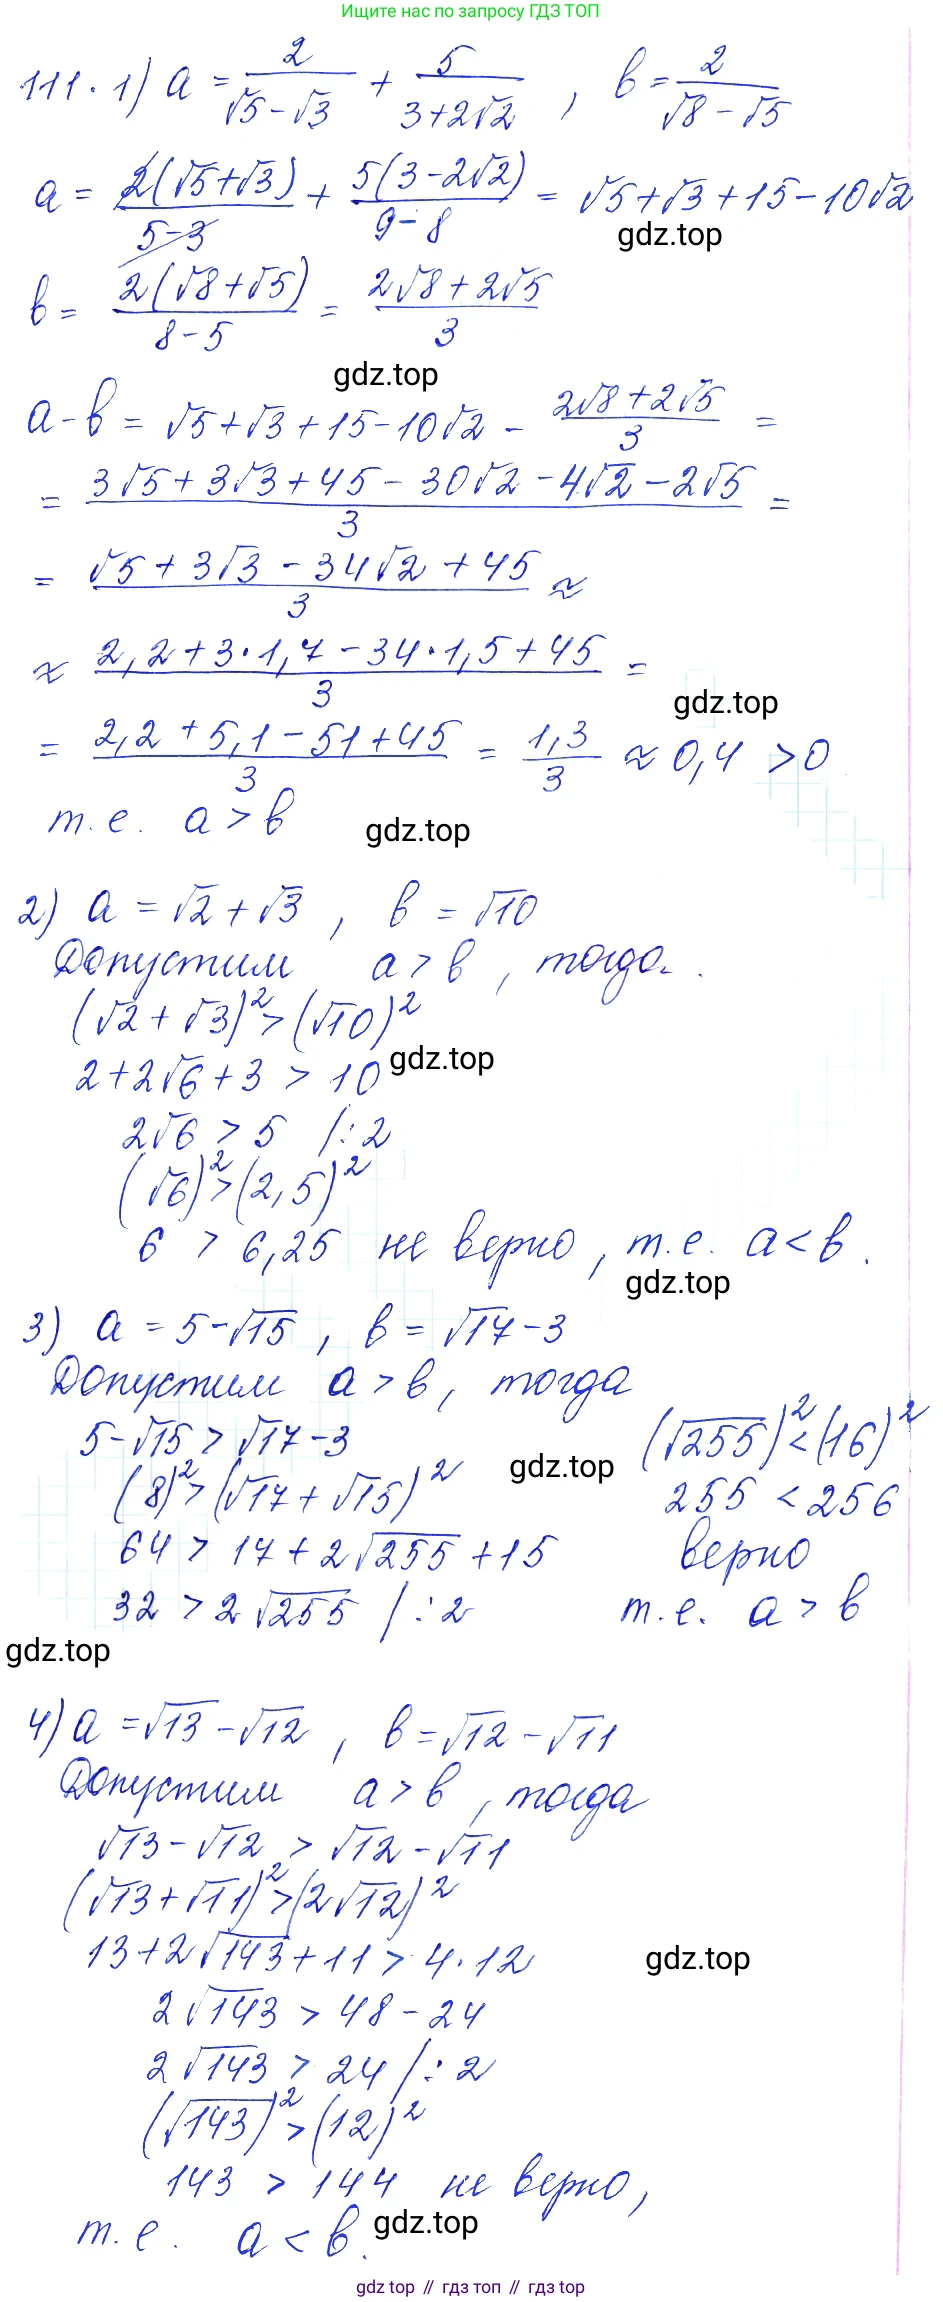 Ищите нас по запросу ГДЗ ТОП
111. 1) a = 2/(√5-√3) + 5/(3+2√2) , b = 2/(√8-√5)
a = 2(√5+√3)/(5-3) + 5(3-2√2)/(9-8) = √5+√3+15-10√2
gdz.top
b = 2(√8+√5)/(8-5) = (2√8+2√5)/3
gdz.top
a-b = √5+√3+15-10√2 - (2√8+2√5)/3 =
= (3√5+3√3+45-30√2-4√2-2√5)/3 =
= (√5+3√3-34√2+45)/3 ≈
≈ (2,2+3·1,7-34·1,5+45)/3 =
gdz.top
= (2,2+5,1-51+45)/3 = 1,3/3 ≈ 0,4 > 0
т.е. a > b
gdz.top
2) a = √2+√3 , b = √10
Допустим a > b , тогда
(√2+√3)² > (√10)²
2+2√6+3 > 10
gdz.top
2√6 > 5 /:2
(√6)² > (2,5)²
6 > 6,25 не верно, т.е. a < b.
gdz.top
3) a = 5-√15 , b = √17-3
Допустим a > b, тогда
5-√15 > √17-3
(8)² > (√17+√15)²
gdz.top
64 > 17+2√255+15
32 > 2√255 /:2
(√255)² < (16)²
255 < 256
верно
т.е. a > b
gdz.top
4) a = √13-√12 , b = √12-√11
Допустим a > b , тогда
√13-√12 > √12-√11
(√13+√11)² > (2√12)²
13+2√143+11 > 4·12
gdz.top
2√143 > 48-24
2√143 > 24 /:2
(√143)² > (12)²
143 > 144 не верно,
т.е. a < b.
gdz.top
gdz top // гдз топ // гдз top